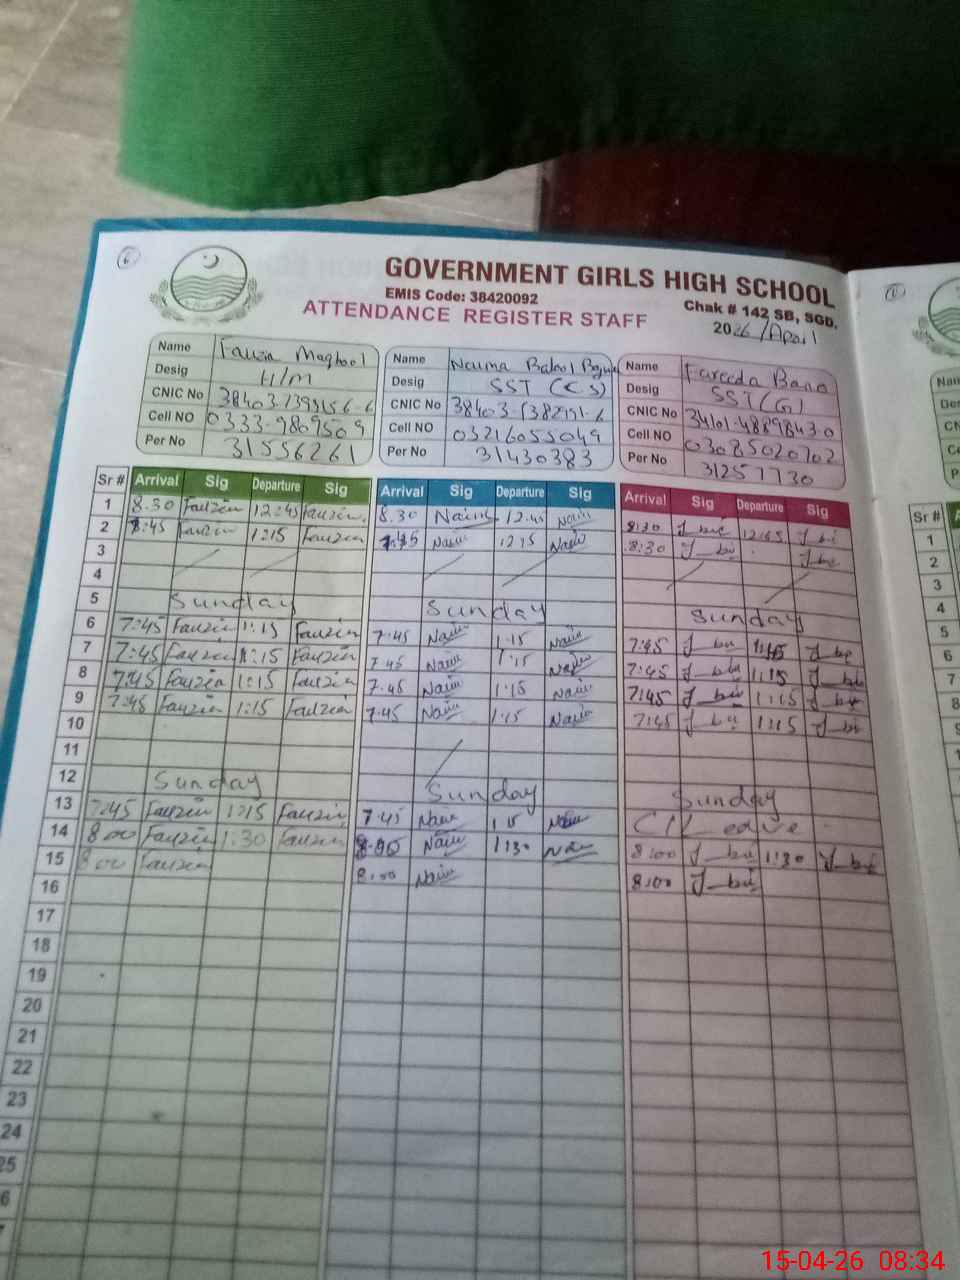 6
GOVERNMENT GIRLS HIGH SCHOOL
EMIS Code: 38420092
Chak # 142 SB, SGD.
ATTENDANCE REGISTER STAFF
2026/April
Name Fauzia Maqbool
Desig H/M
CNIC No
Cell NO 0333-9809509
Per No 31556261
Name Batool
Desig SST (CS)
CNIC No
Cell NO 03216055049
Per No 31430383
Name Fareeda Bano
Desig SST (G)
CNIC No 34101-4889843-0
Cell NO 03085020702
Per No 31257730
Sr # Arrival Sig Departure Sig Arrival Sig Departure Sig Arrival Sig Departure Sig
1 8.30 Fauzia 12:45 Fauzia 8.30 Naim 12.45 Naim 8:30 12:45
2 8:45 Fauzia 1:15 Fauzia Naim Naim 8:30
3
4
5 Sunday Sunday Sunday
6 7:45 Fauzia 1:15 Fauzia 7:45 Naim 1:15 Naim 7:45
7 7:45 Fauzia 1:15 Fauzia 7.45 Naim 1:15 Naim 7:45 1:15
8 7:45 Fauzia 1:15 Fauzia 7.45 Naim 1:15 Naim 7:45 1:15
9 7:45 Fauzia 1:15 Fauzia 7.45 Naim 1:15 Naim 7:45 1:15
10
11
12 Sunday Sunday Sunday
13 7:45 Fauzia 1:15 Fauzia 7.45 Naim 1:15 Naim C/Leave
14 8:00 Fauzia 1:30 Fauzia Naim 1:30 Naim 8:00 1:30
15 8:00 Fauzia 8:00 Naim 8:00
16
17
18
19
20
21
22
23
24
25
6
Sr #
1
2
3
4
5
6
7
8
15-04-26 08:34